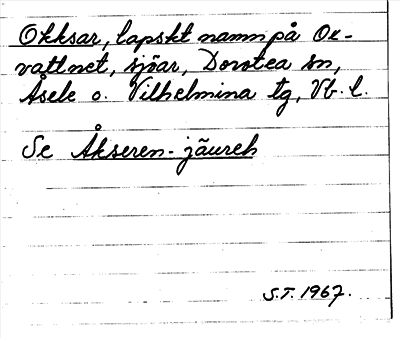 Okksar, lapskt namn på Or-
vattnet, sjöar, Dorotea sn,
Åsele o. Vilhelmina tg, Vb. l.
Se Åkseren-jäureh
S.T. 1967.